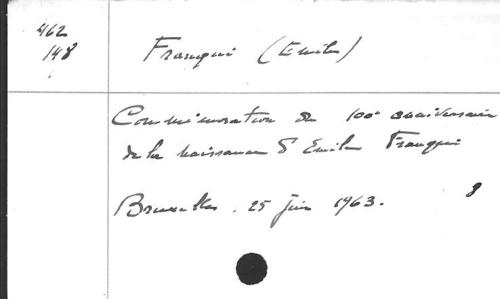 462
148
Francqui (Emile)
Commémoration du 100e anniversaire
de la naissance d'Emile Francqui
Bruxelles. 25 juin 1963.
8